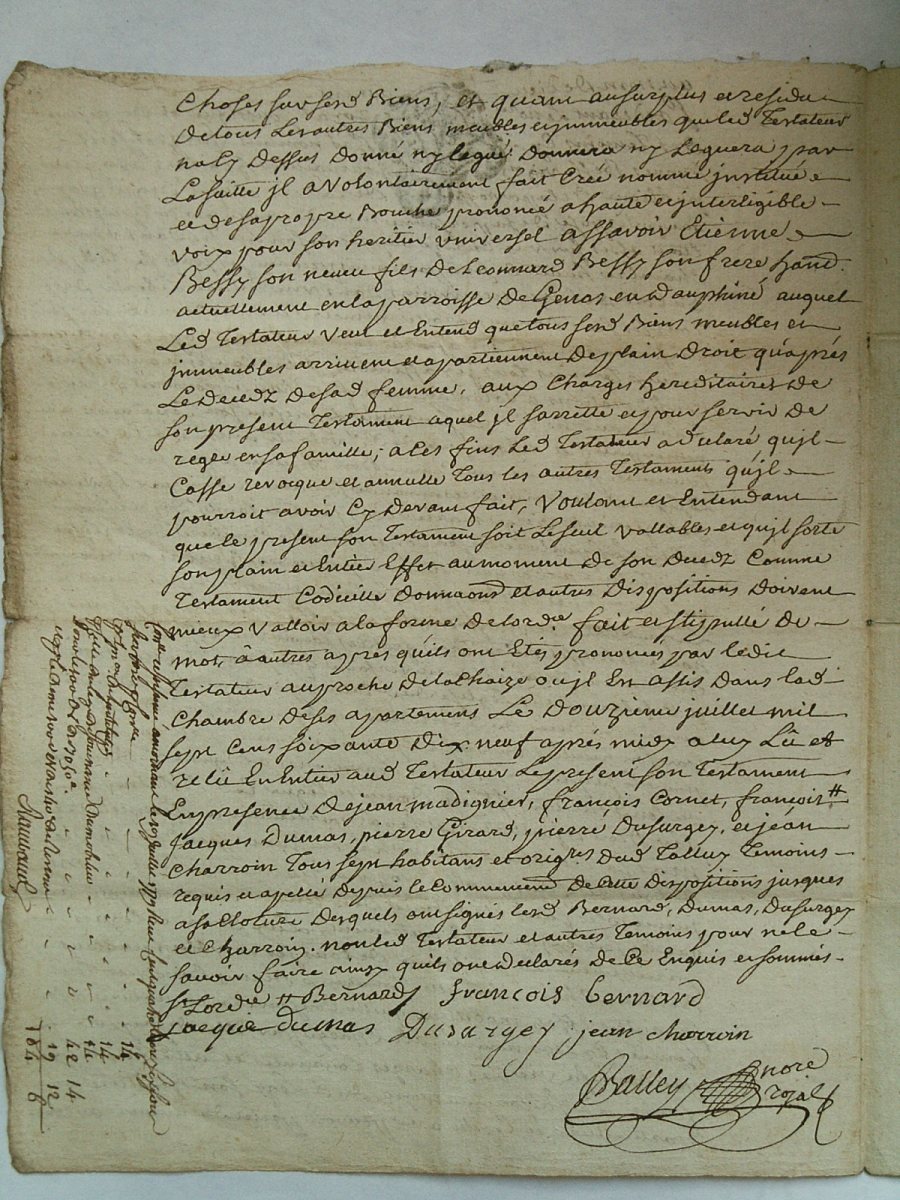 Choses sur sesd Biens, et quant au surplus et residu
de tous les autres Biens meubles et immeubles que led Testateur
na Cy Dessus donné ny legué, Donnera ny Leguera par
La suitte jl a volontairement fait Créé nommé jnstitué
et de sa propre Bouche prononcé a haute et jnterligible
voix pour son heritier vniversel assavoir Etienne
Bessy son neveu fils de Leonnard Bessy son frere hand.
actuellement en la parroisse de Genas en dauphiné auquel
Led Testateur veut et Entend que tous sesd Biens meubles et
jmmeubles arrivent et apartiennent de plain Droit qu'aprés
Le decedz de sad femme, aux Charges hereditaires de
son present Testament aquel jl sarrette et pour servir de
regle en sa famille, a Ces fins Led Testateur a declaré qu'jl
Casse revocque et annulle Tous les autres Testaments qu'jl
pourroit avoir Cy devant fait, Voulant et Entendant
que le present son Testament soit Le seul vallables et qu'jl sorte
son plain et Entier Effet au moment de son Decedz Comme
Testament Codicille donnaond et autres Dispositions doivent
mieux valloir a la forme de lord.ce fait et stipullé de
mot, à autres apres qu'ils ont Etés prononcés par le dit
Testateur au proche de la Chaize ou jl Est assis dans lad
Chambre de ses apartemens Le douziéme juillet mil
sept Cens soixante Dix neuf aprés midy a luy Lû et
relû En Entier aud Testateur Le present son Testament
En presence de jean madignier, françois Cornet, françois #
Jacques Dumas, pierre Girard, pierré Dusurgey, et jean
Charroin Tous sept habitans et orig.res dud Talluy Temoins
requis et apellé depuis le Commencem.t de Cette dispositions jusques
a sa Cloture desquels ont signés lesd Bernard, Dumas, Dusurgey
et Charroin. non led Testateur et autres Temoins pour ne le
savoir faire ainsy quils ont declarés de Ce Enquis et sommés
# Bernard françois bernard
jacque dumas Dusurgey jean charroin
Balley no.re
royal
14
14
14
42 14
19 12